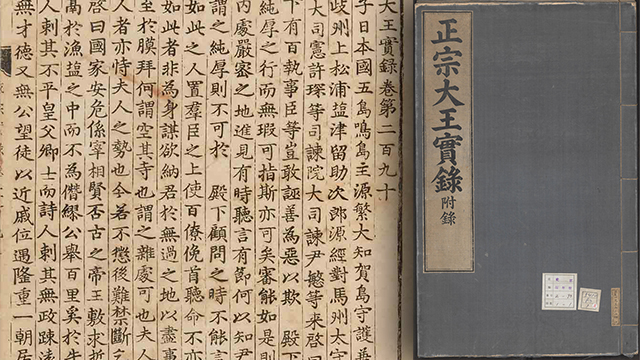 大王實錄卷第二百九十
子日本國五島鳴島主源繁大知賀島守護善
歧州上松浦塩津留助次郎源經對馬州太守
大司憲許琛等司諫院大司諫尹慜等来啓
下有百執事臣等豈敢誣善為惡以欺 殿下
純厚之行而無瑕可指斯亦可矣審能如是則
內處嚴密之地進見有時聽言有節何以知
謂之純厚則不可於 殿下顧問之時不能言
如此之人置羣臣之上使百僚俛首聽命不亦
如此者非為身謀欲納君於無過之地以盡事
至於膜拜何謂空其寺也謂之雜處可也夫人
人者亦恃夫人之勢也今若不懲後難禁斷
啓曰國家安危係宰相賢否古之帝王敷求哲
髙於漁塩之中而不為僭繆公舉百里奚於
人刺其不平皇父卿士而詩人刺其無政踈
無才德又無公望徒以近戚位遇隆重一朝居
正宗大王實錄
附錄